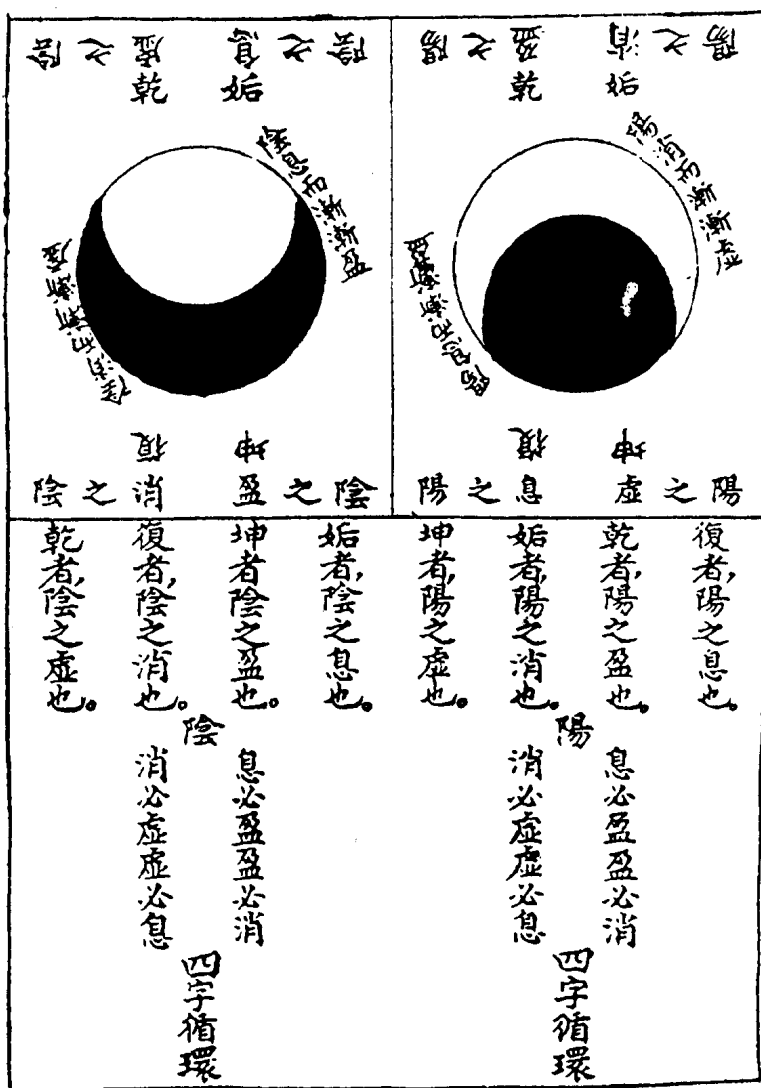 陽之消
陽之盈
姤
乾
陽消而漸漸虛
陽息而漸漸盈
坤
復
陽之虛
陽之息
陰之息
陰之虛
姤
乾
陰息而漸漸盈
陰消而漸漸虛
坤
復
陰之盈
陰之消
復者,陽之息也。
乾者,陽之盈也。
姤者,陽之消也。
坤者,陽之虛也。
陽
息必盈盈必消
消必虛虛必息
四字循環
姤者,陰之息也。
坤者陰之盈也。
復者,陰之消也。
乾者,陰之虛也。
陰
息必盈盈必消
消必虛虛必息
四字循環